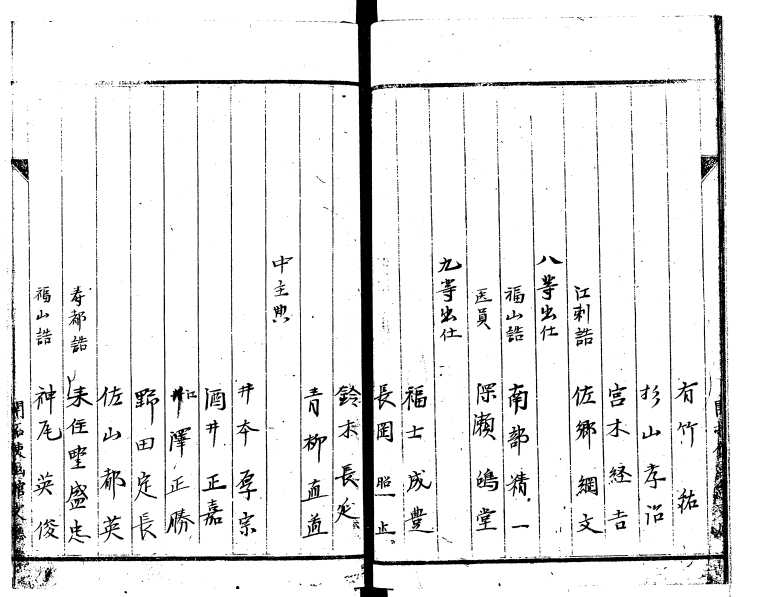 有竹 祐
杉山孝治
宮木経吉
江刺詰 佐郷網文
八等出仕
福山詰 南部精一
医員 深瀬鴻堂
九等出仕
福士成豊
長岡照止
鈴木長延
青柳直道
中主典
井本厚宗
酒井正嘉
江澤正勝
野田定長
佐山都英
寿都詰 来住野盛忠
福山詰 神尾英俊